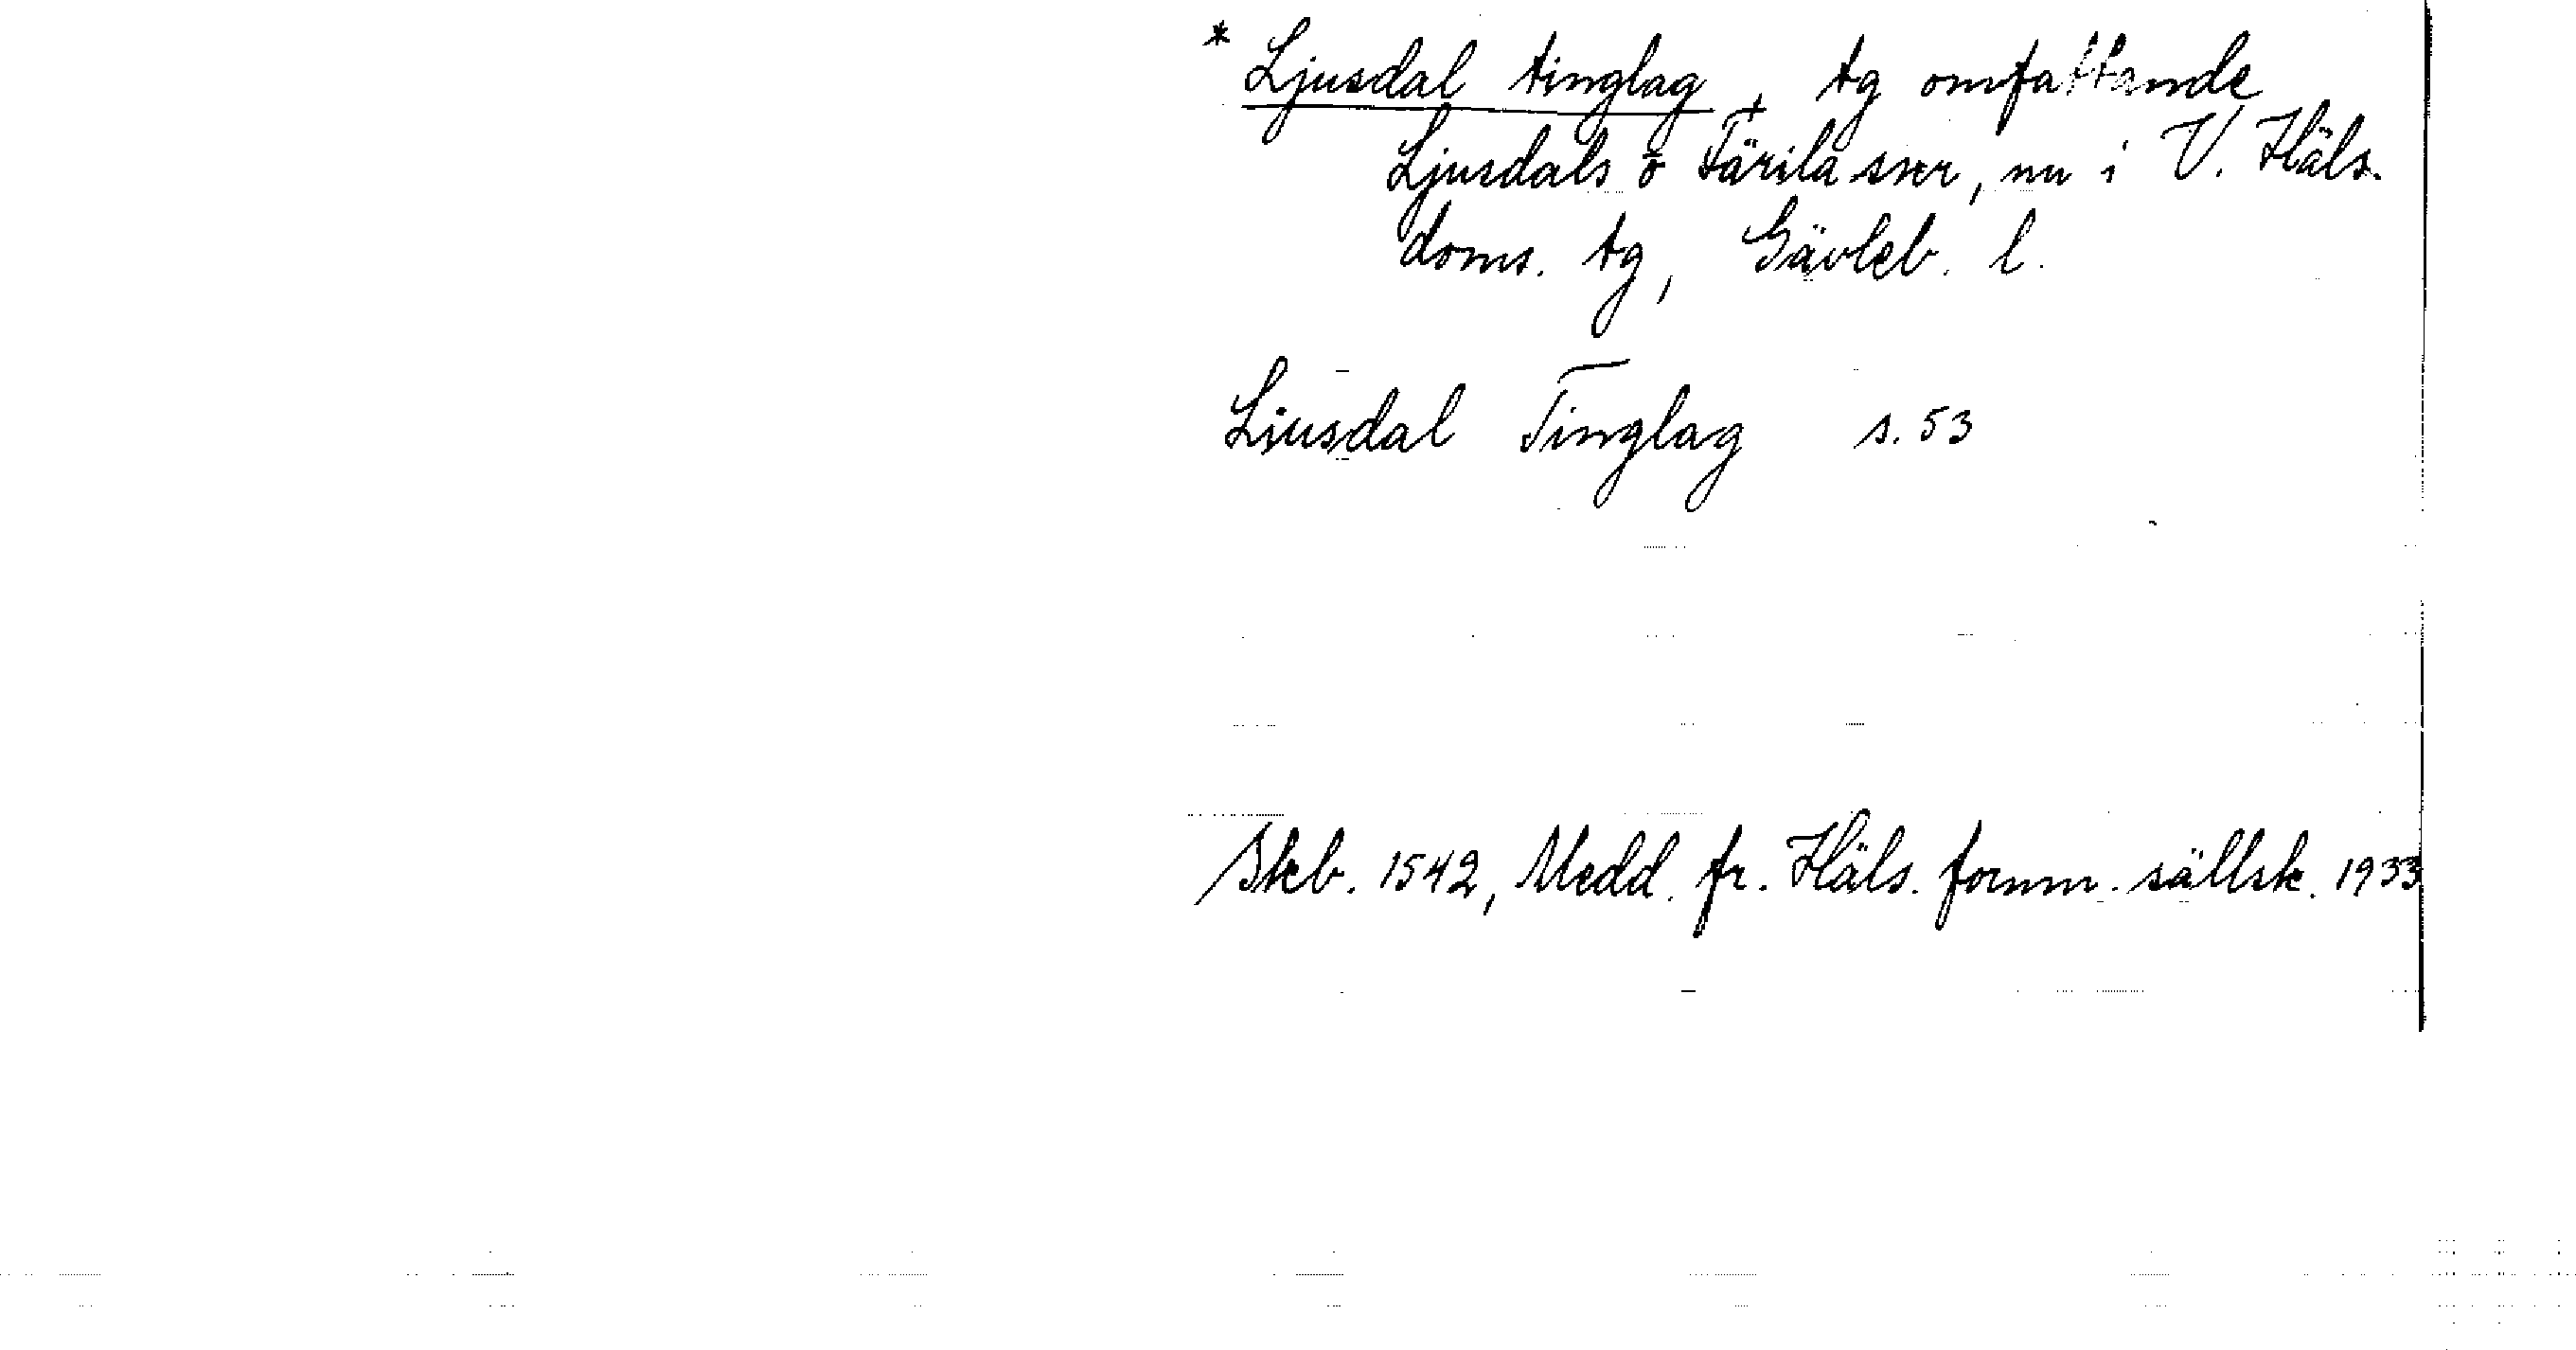 * Ljusdal tinglag + tg omfattande
Ljusdals o Färila sner, nu i V. Häls.
doms. tg, Gävleb. l.
Liusdal Tinglag s. 53
Skb. 1542, Medd. fr. Häls. fornm. sällsk. 1933